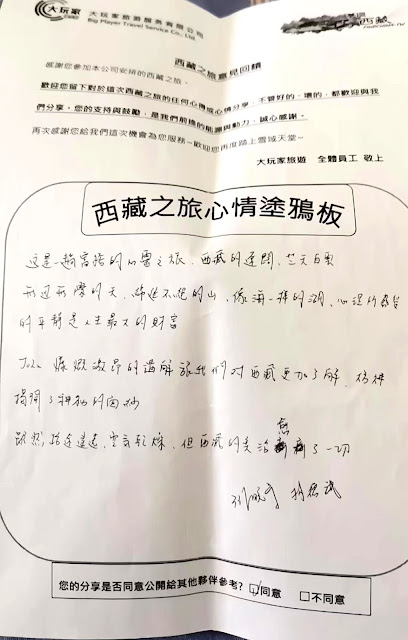 大玩家 大玩家旅遊服務有限公司
Big Player Travel Service Co., Ltd.
西藏
西藏之旅意見回饋
感謝您參加本公司安排的西藏之旅、
歡迎您留下對於這次西藏之旅的任何心得或心情分享，不管好的、壞的，都歡迎與我
們分享。您的支持與鼓勵，是我們前進的能源與動力，誠心感謝。
再次感謝您給我們這次機會為您服務~歡迎您再度踏上雪域天堂~
大玩家旅遊 全體員工 敬上
西藏之旅心情塗鴉板
這是一趟富裕的心靈之旅，西藏的遼闊，藍天白雲
的天，綿延不絕的山，像海一樣的湖，心裡所感受
的平靜是人生最大的財富
John 慷慨激昂的講解讓我們對西藏更加了解，彷彿
揭開了神秘的面紗
雖然路途遙遠，空氣乾燥，但西藏的美治癒了一切
您的分享是否同意公開給其他夥伴參考？☑同意 □不同意